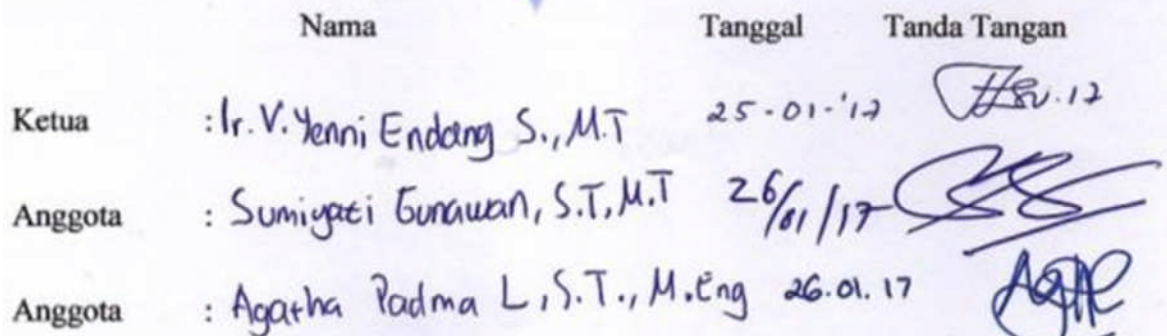 Nama Tanggal Tanda Tangan
Ketua : Ir. V. Yenni Endang S., M.T 25-01-'17
Anggota : Sumiyati Gunawan, S.T, M.T 26/01/17
Anggota : Agatha Padma L, S.T., M.Eng 26.01.17